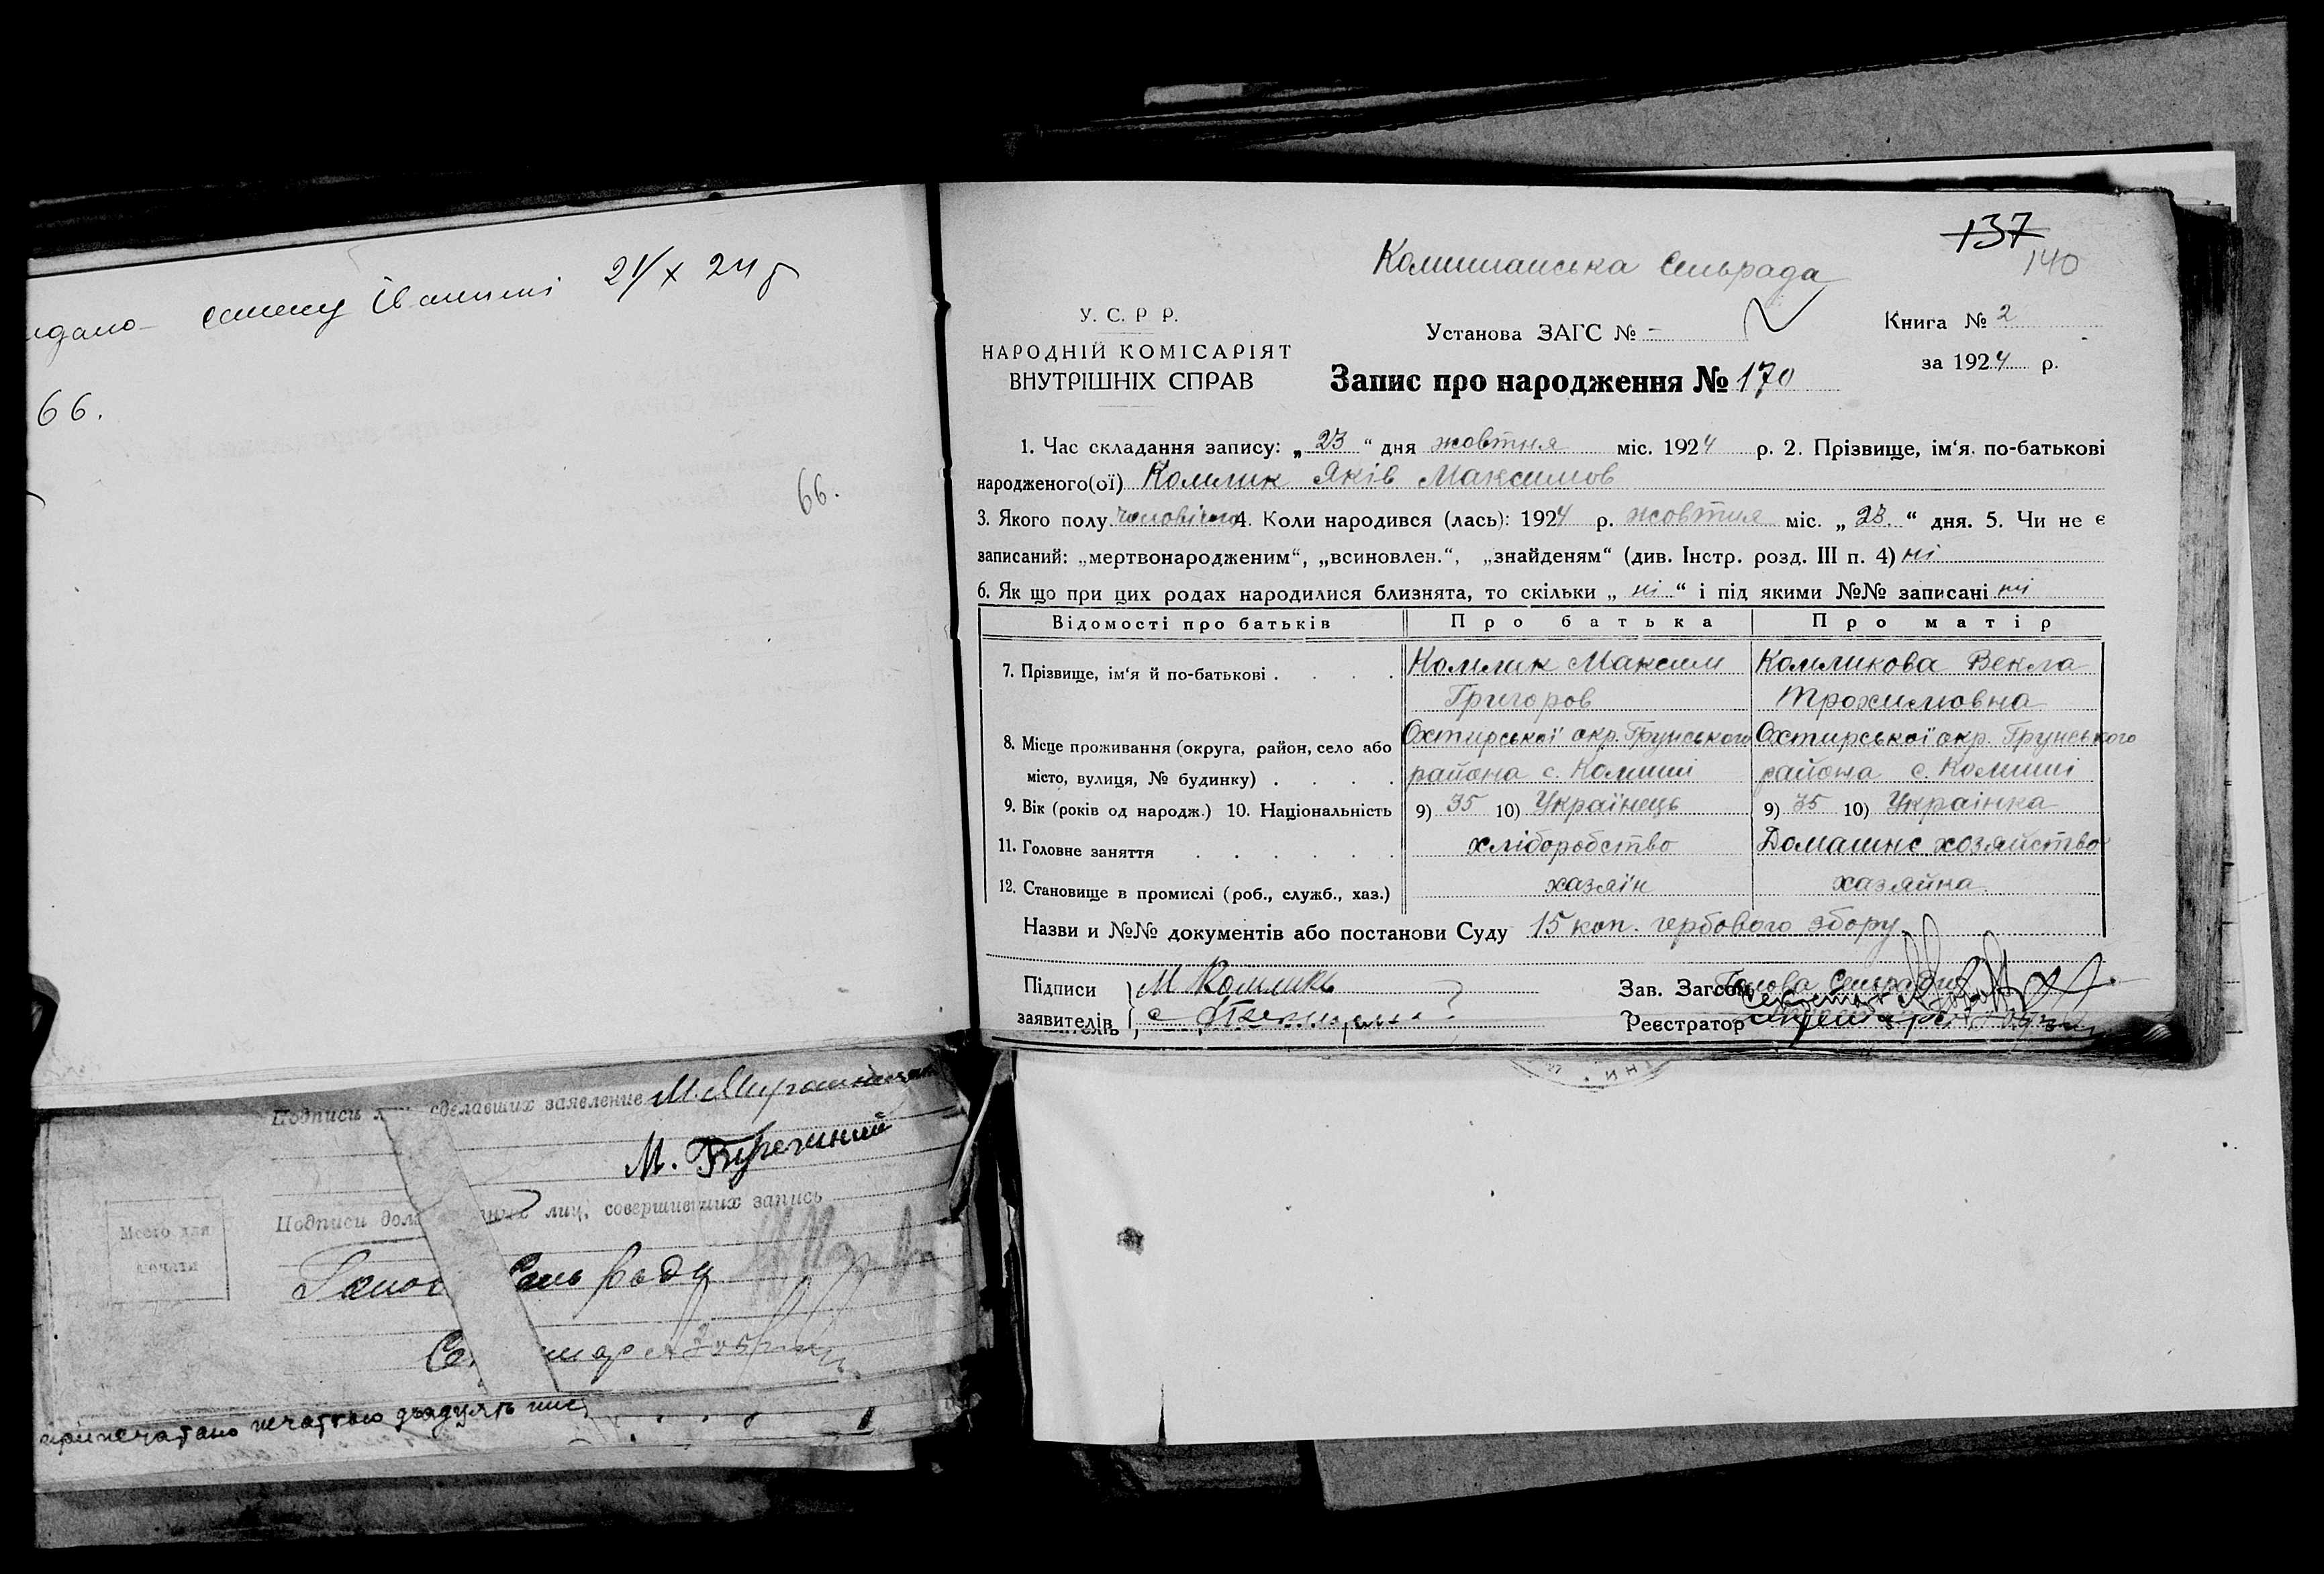 21/X 24 р
66.
66.
Подписи сделавших заявление
М. Бугечиний
Подписи лиц, совершивших запись
Место для
печати
137
140
Комишанська Сільрада
У. С. Р Р.
НАРОДНІЙ КОМІСАРІЯТ
ВНУТРІШНІХ СПРАВ
Установа ЗАГС № -
Книга № 2
за 1924 р.
Запис про народження № 170
1. Час складання запису: „ 23 “ дня жовтня міс. 1924 р. 2. Прізвище, ім‘я, по-батькові
народженого(ої) Комлик Яків Максимов
3. Якого полу чоловічого 4. Коли народився (лась): 1924 р. жовтня міс. „ 23. “ дня. 5. Чи не є
записаний: „мертвонародженим“, „всиновлен.“, „знайденям“ (див. Інстр. розд. III п. 4) ні
6. Як що при цих родах народилися близнята, то скільки „ ні “ і під якими №№ записані ні
Відомості про батьків Про батька Про матір
7. Прізвище, ім‘я й по-батькові . . . . Комлик Максим Комликова Векла
Григоров Трохимовна
8. Місце проживання (округа, район, село або Охтирської окр. Грунського Охтирської окр. Грунського
місто, вулиця, № будинку) . . . . района с. Комиші района с. Комиші
9. Вік (років од народж.) 10. Національність 9) 35 10) Українець 9) 35 10) Українка
11. Головне заняття . . . . . . хліборобство Домашнє хозяйство
12. Становище в промислі (роб., служб., хаз.) хазяїн хазяйна
Назви и №№ документів або постанови Суду 15 коп. гербового збору
Підписи М Комликъ Зав. Загсом Голова Сільради
заявителів Реєстратор